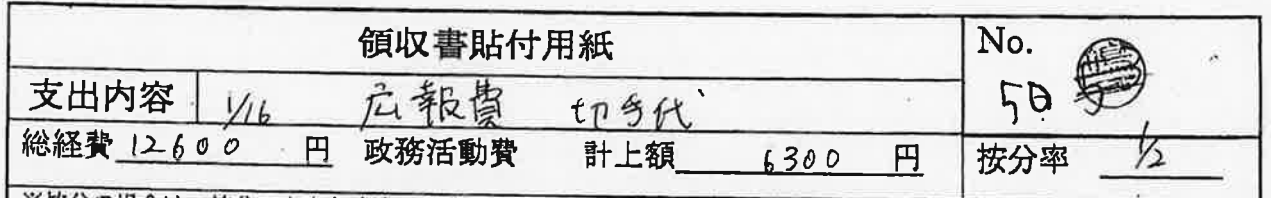 領収書貼付用紙 No.
支出内容 1/16 広報費 切手代 5日
総経費 12600 円 政務活動費 計上額 6300 円 按分率 1/2